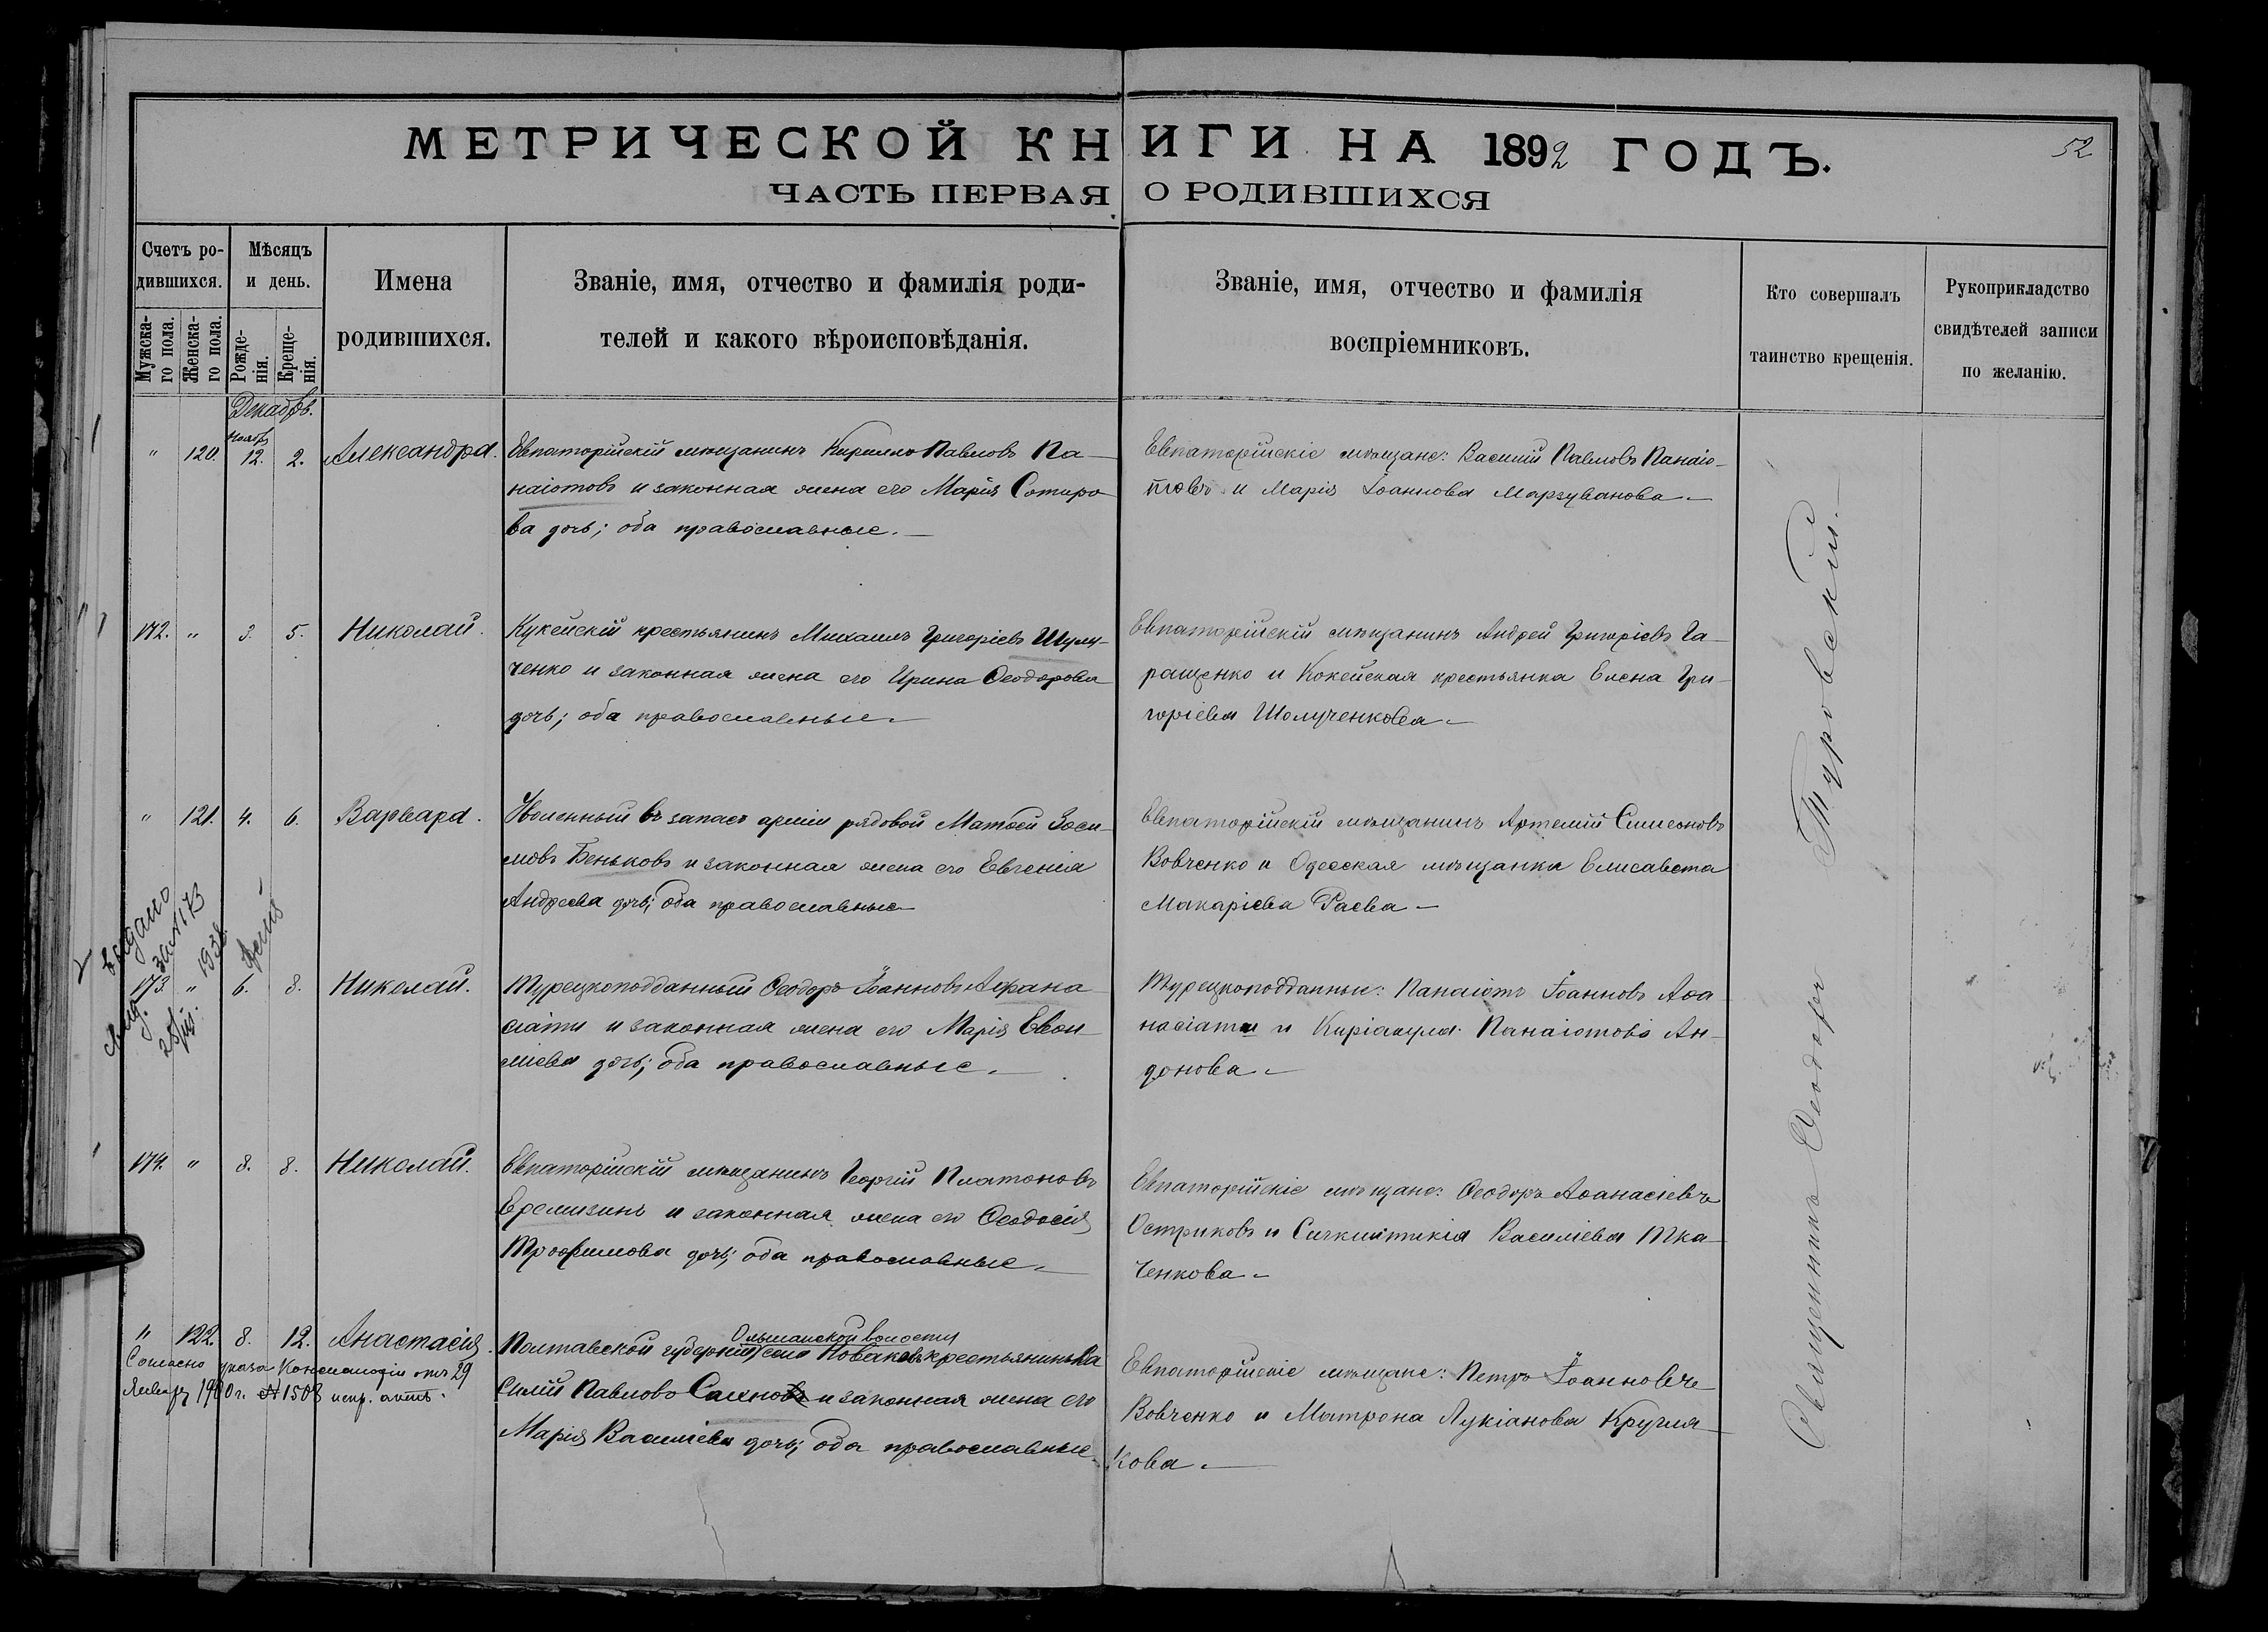 МЕТРИЧЕСКОЙ КНИГИ НА 1892 ГОДЪ.
52
ЧАСТЬ ПЕРВАЯ О РОДИВШИХСЯ
Счетъ ро-
дившихся.
Мужска-
го пола.
Женска-
го пола.
Мѣсяцъ
и день.
Рожде-
нія.
Креще-
нія.
Имена
родившихся.
Званіе, имя, отчество и фамилія роди-
телей и какого вѣроисповѣданія.
Званіе, имя, отчество и фамилія
воспріемниковъ.
Кто совершалъ
таинство крещенія.
Рукоприкладство
свидѣтелей записи
по желанію.
Декабрь.
Ноябр
" 120. 12. 2. Александра.
Евпаторійскій мѣщанинъ Кириллъ Павловъ Па-
наіотовъ и законная жена его Марія Сотиро-
ва дочь; оба православные.
Евпаторійскіе мѣщане: Василій Павловъ Панаіо-
товъ и Марія Іоаннова Марзуванова.
172. " 3. 5. Николай.
Кукейскій крестьянинъ Михаилъ Григоріевъ Шулу-
ченко и законная жена его Ирина Ѳеодорова
дочь; оба православные.
Евпаторійскій мѣщанинъ Андрей Григоріевъ Га-
ращенко и Кокейская крестьянка Елена Гри-
горіева Шолученкова.
" 121. 4. 6. Варвара.
Уволенный въ запасъ арміи рядовой Матѳей Зоси-
мовъ Беньковъ и законная жена его Евгенія
Андреева дочь; оба православные
Евпаторійскій мѣщанинъ Артемій Симеоновъ
Вовченко и Одесская мѣщанка Елисавета
Макаріева Раева
выдано
за № 173
1938
25
173. " 6. 8. Николай.
Турецкоподданный Ѳеодоръ Іоанновъ Афана-
сіати и законная жена его Марія
дочь; оба православные.
Турецкоподданные: Панаіотъ Іоанновъ Аѳа-
насіати и Киріакула Панаіотова Ан-
донова.
174. " 8. 8. Николай.
Евпаторійскій мѣщанинъ Георгій Платоновъ
Еремизинъ и законная жена его Ѳеодосія
Трофимова дочь; оба православные.
Евпаторійскіе мѣщане: Ѳеодоръ Аѳанасіевъ
Остриковъ и Василіева Тка-
ченкова.
" 122. 8. 12. Анастасія.
Согласно указа Консисторіи отъ 29
Января 1900 г. № 1508 испр. актъ.
Ольшанской волости
Полтавской губерніи, села крестьянинъ Ва-
силій Павловъ Сахновъ и законная жена его
Марія Василіева дочь; оба православные.
Евпаторійскіе мѣщане: Петръ Іоанновъ
Вовченко и Матрона Лукіанова Кругля-
кова.
Священникъ Ѳеодоръ Туровскій.